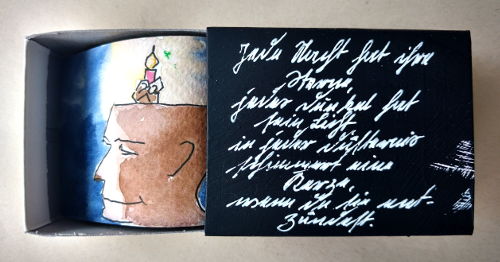 Jede Nacht hat ihre
Sterne,
jedes Dunkel hat
sein Licht
in jeder Düsternis
schimmert eine
Kerze,
wenn du sie ent-
zündest.